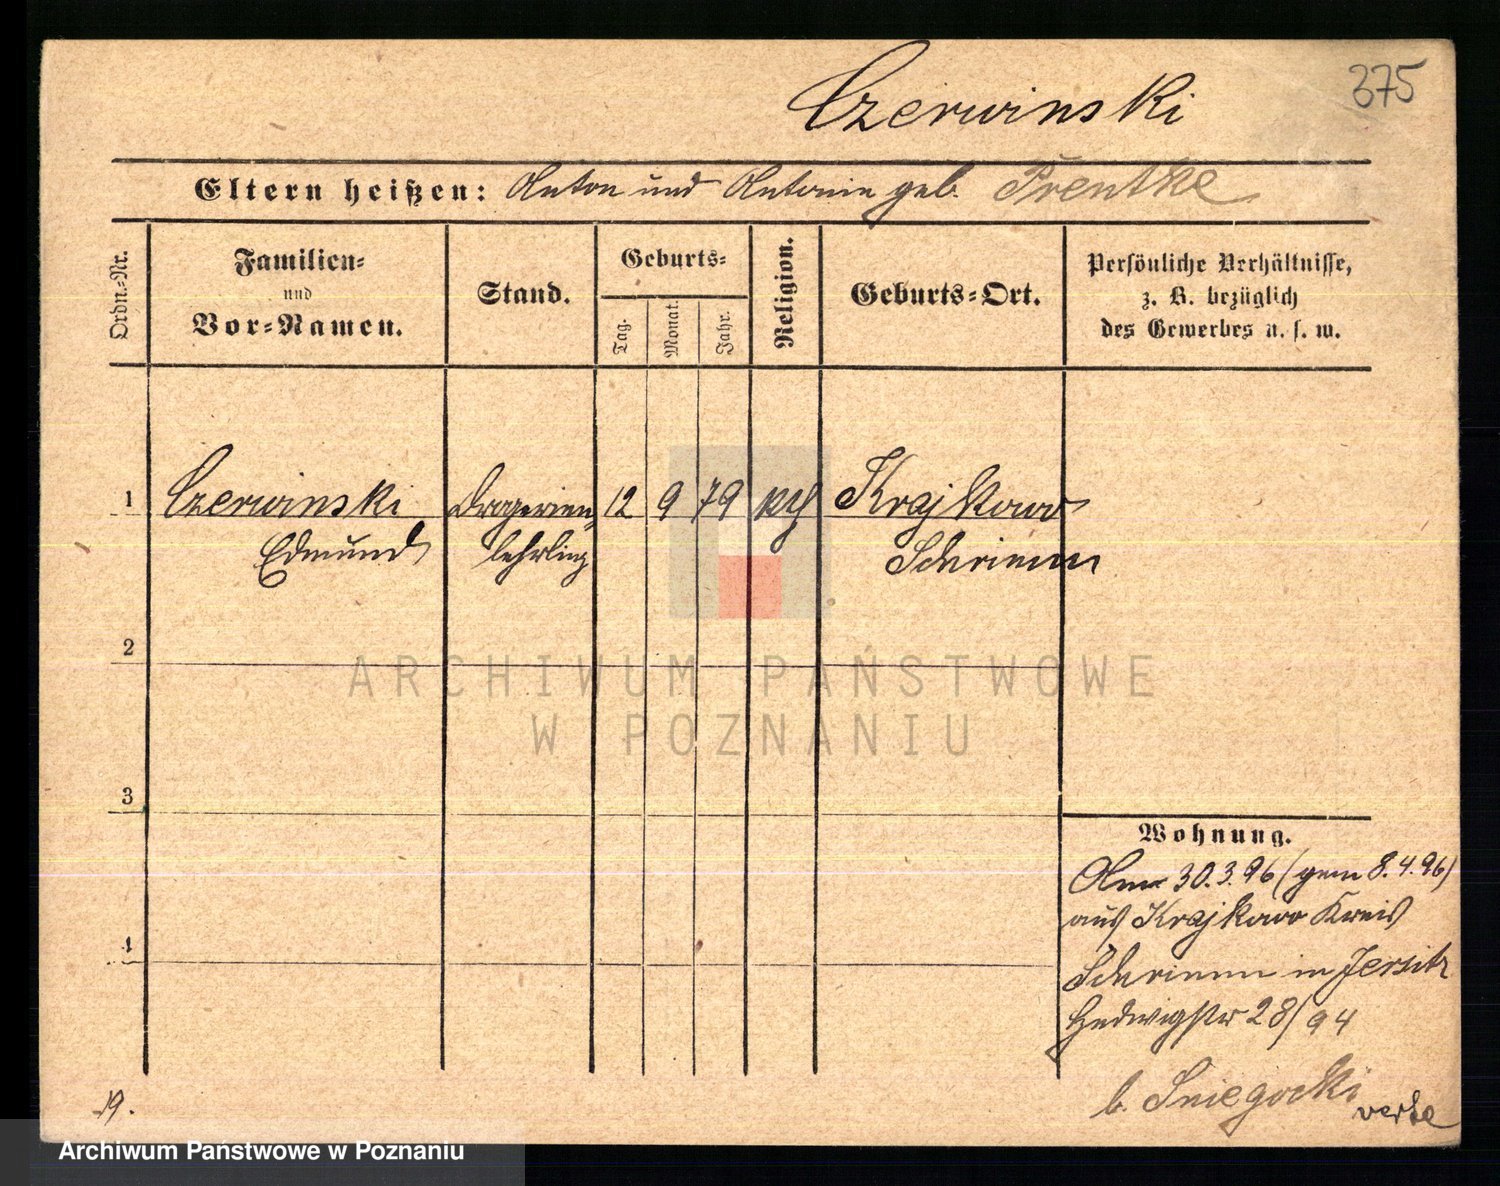 375
Czerwinski
Eltern heißen: Anton und Antonie geb. Prentke
Ordn.-Nr.
Familien-
und
Vor-Namen.
Stand.
Geburts-
Tag.
Monat.
Jahr.
Religion.
Geburts-Ort.
Persönliche Verhältnisse,
z. B. bezüglich
des Gewerbes u. s. w.
1 Czerwinski Drogerien- 12 9 79 kth Krajkowo
Edmund lehrling Schrimm
2
3
4
Wohnung.
30.3.96 (gem 8.4.96)
aus Krajkowo Kreis
Schrimm in Jersitz
Hedwigstr 28/94
b. Sniegocki
verte
19.
ARCHIWUM PAŃSTWOWE
W POZNANIU
Archiwum Państwowe w Poznaniu